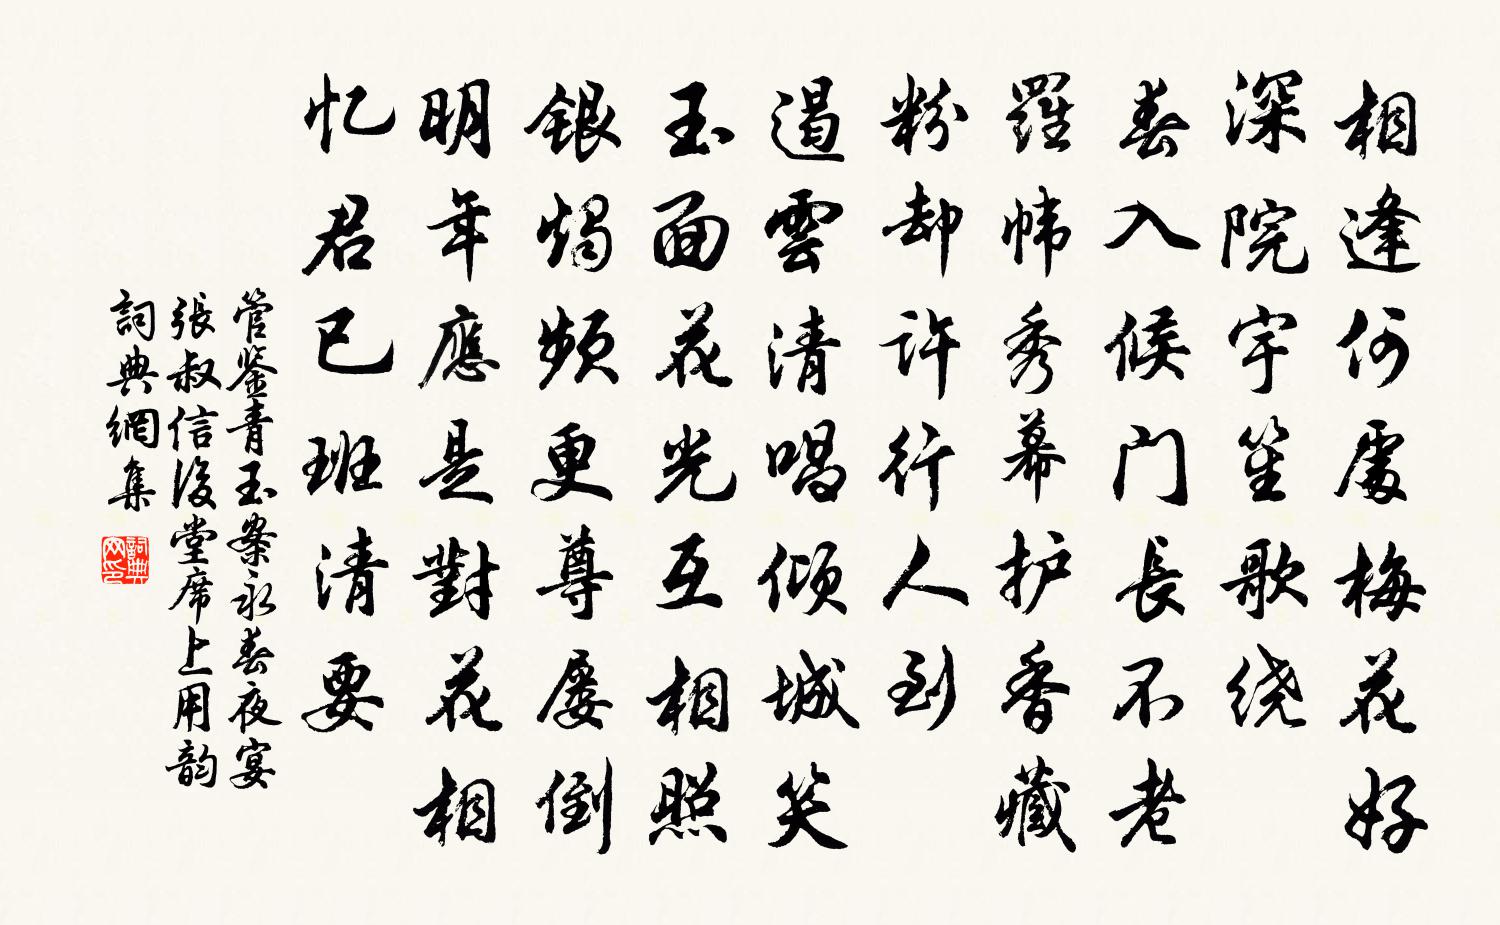 相逢何處梅花好
深院宇笙歌绕
春入候门長不老
羅帏秀幕护香藏
粉却许行人到
遏雲清唱倾城笑
玉面花光互相照
银燭频更尊屡倒
明年應是對花相
忆君已班清要
管鉴青玉案永春夜宴
張叔信後堂席上用韵
詞典網集